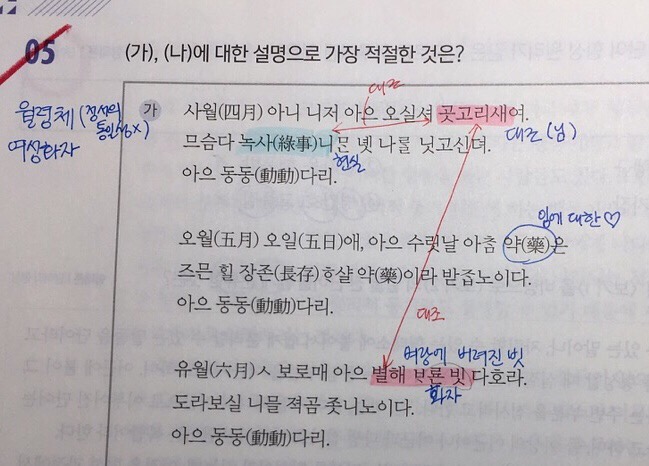 05 (가), (나)에 대한 설명으로 가장 적절한 것은?
대조
월령체 (정서의 통일성X)
여성화자
가
사월(四月) 아니 니저 아으 오실셔 곳고리새여.
대조 (님)
므슴다 녹사(綠事)니믄 녯 나를 닛고신뎌.
현실
아으 동동(動動)다리.
임에 대한♡
오월(五月) 오일(五日)애, 아으 수릿날 아츰 약(藥)은
즈믄 힐 장존(長存)ᄒᆞ샬 약(藥)이라 받ᄌᆞᆸ노이다.
아으 동동(動動)다리.
대조
벼랑에 버려진 빗
유월(六月)ㅅ 보로매 아으 별해 ᄇᆞ룐 빗 다호라.
화자
도라보실 니믈 젹곰 좃니노이다.
아으 동동(動動)다리.